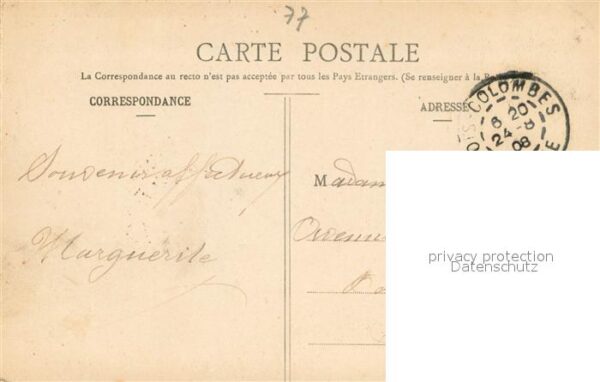 77
CARTE POSTALE
La Correspondance au recto n'est pas acceptée par tous les Pays Etrangers. (Se renseigner à la
CORRESPONDANCE
ADRESSE
COLOMBES
6 20
24 -8
08
Souvenir affectueux
Marguerite
Madam
Avenu
privacy protection
Datenschutz